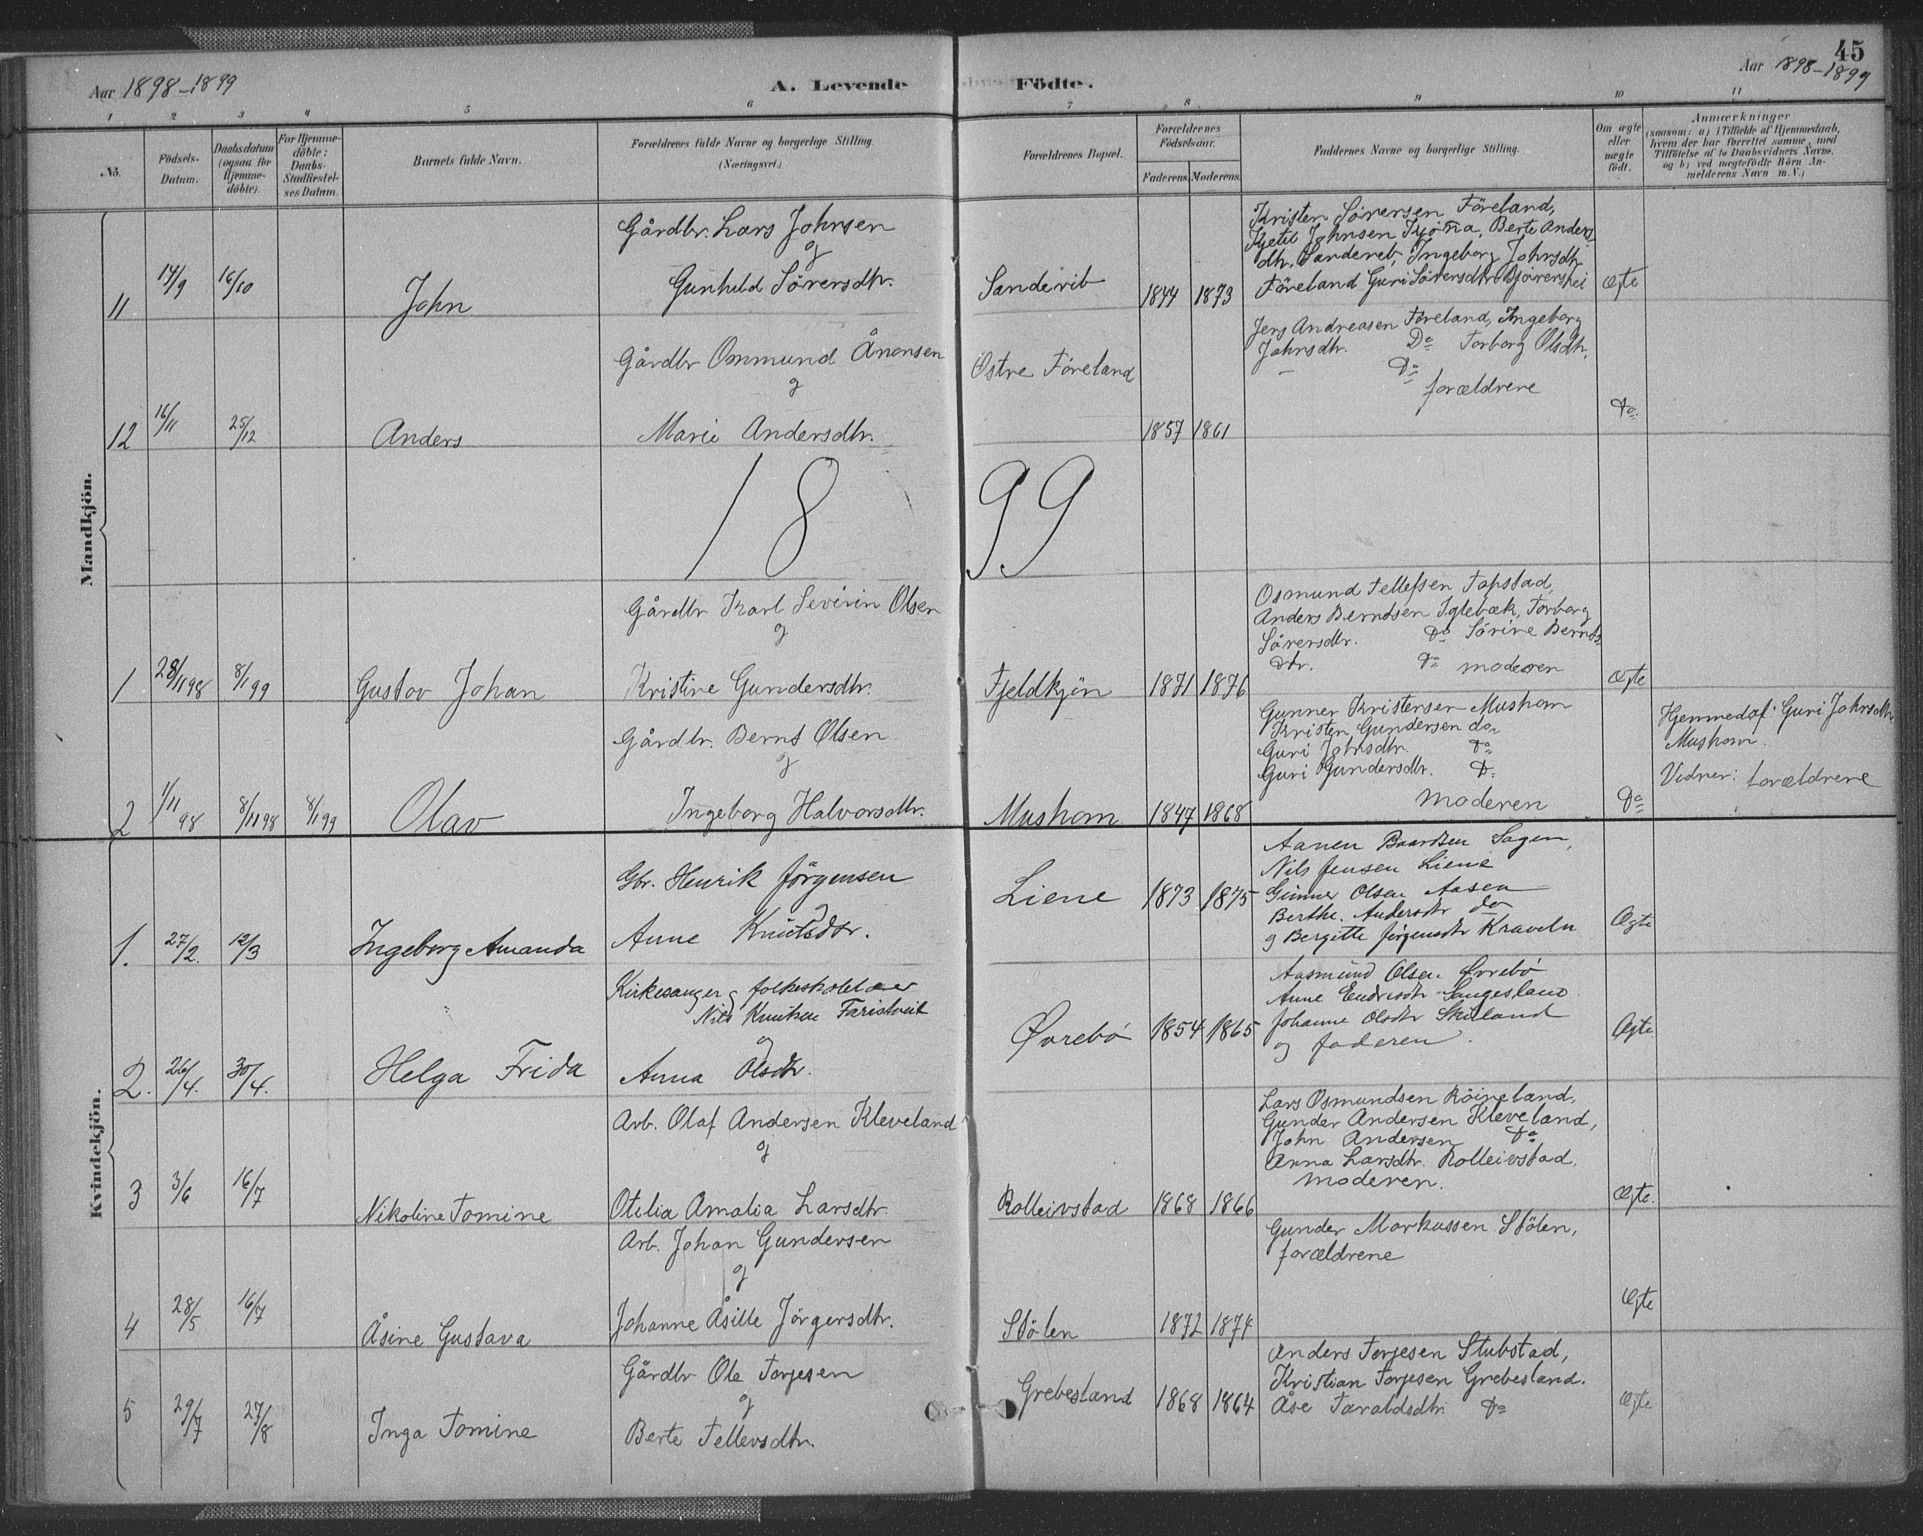 45
Aar 1898-1899
A. Levende
Födte.
Aar 1898-1899
1 2 3 4 5 6 7 8 9 10 11
No.
Födsels-
Datum.
Daabsdatum
(ogsaa for
Hjemme-
döbte).
For Hjemme-
döbte:
Daabs-
Stadfæstel-
ses Datum.
Barnets fulde Navn.
Forældrenes fulde Navne og borgerlige Stilling.
(Næringsvei.)
Forældrenes Bopæl.
Forældrenes
Födselsaar.
Faderens. Moderens.
Faddernes Navne og borgerlige Stilling.
Om ægte
eller
uægte
født.
Anmærkninger
(saasom: a) i Tilfælde af Hjemmedaab,
hvem der har forrettet samme, med
Tilföielse af to Daabsvidners Navne,
og b) ved uægtefödte Börn An-
melderens Navn m. V.)
Mandkjön.
11
14/9
16/10
John
Gårdbr. Lars Johnsen
og
Gunhild Sörensdtr.
Sandvib
1844 1873
Kristen Sörensen Föreland,
Kjetil Johnsen Berte Anders-
dtr. Ingeborg Johnsdtr
Föreland Guri Sörensdtr
Ægte
12
16/11
25/12
Anders
Gårdbr Osmund Ånonsen
og
Marie Andersdtr.
Östre Föreland
1857 1861
Jens Andreasen Föreland, Ingeborg
Johnsdtr. Do Torborg Olsdtr.
Do
forældrene
Do
1899
1
28/11 98
8/1 99
Gustav Johan
Gårdbr Karl Severin Olsen
og
Kristine Gundersdtr.
Fjeldkjön
1871 1876
Osmund Tellefsen Topstad,
Anders Berndsen Iglebæk, Torborg
Sörensdtr. Do Sörine Bernds-
dtr. Do moderen
Ægte
2
1/11 98
8/11 98
8/1 99
Olav
Gårdbr. Bernt Olsen
og
Ingeborg Halvorsdtr.
Mushom
1847 1868
Gunner Kristensen Mushom
Kristen Gundersen do
Guri Johnsdtr. Do
Guri Gundersdtr. Do
Moderen
Do
Hjemmedøf: Guri Johnsdtr
Mushom.
Vidner: forældrene
Kvindekjön.
1.
27/2.
12/3
Ingeborg Amanda
Gbr. Henrik Jörgensen
og
Anne Knutsdtr.
Liene
1873 1875
Aanen Baardsen Sagen,
Nils Jensen Liene
Gunner Olsen Aasen
Berthe. Andersdtr do
og Bergitte Jörgensdtr Kraveln
Ægte
2.
26/4.
30/4.
Helga Frida
Kirkesanger og folkeskolelærer
Nils Knutsen Faristveit
og
Anna Olsdtr.
Øvrebø
1854 1865
Aasmund Olsen Øvrebö
Anne Endresdtr Sangesland
Johanne Olsdtr Skuland
og faderen.
Ægte
3
3/6
16/7
Nikoline Tomine
Arb. Olaf Andersen Kleveland
og
Otilia Amalia Larsdtr.
Rolleivstad
1868 1866
Lars Osmundsen Röineland,
Gunder Andersen Kleveland,
John Andersen Do
Anna Larsdtr. Rolleivstad.
moderen.
Ægte.
4
28/5
16/7
Åsine Gustava
Arb. Johan Gundersen
og
Johanne Åsille Jörgensdtr.
Stölen
1872 1874
Gunder Markussen Stölen,
forældrene
Ægte
5
29/7
27/8
Inga Tomine
Gårdbr Ole Torjesen
og
Berte Tellevsdtr.
Grebesland
1868 1864
Anders Torjesen Stubstad,
Kristian Torjesen Grebesland.
Åse Taraldsdtr Do
Ægte